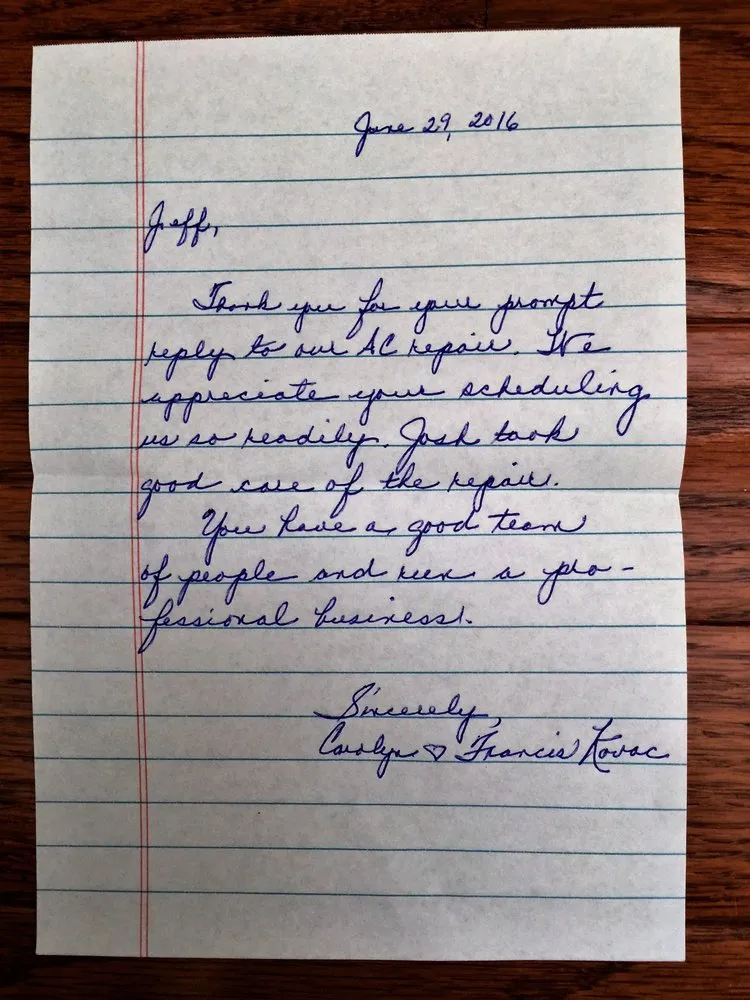 June 29, 2016
Jeff,
Thank you for your prompt
reply to our AC repair. We
appreciate your scheduling
us so readily. Josh took
good care of the repair.
You have a good team
of people and run a pro-
fessional business!.
Sincerely,
Carolyn ♡ Francis Kovac